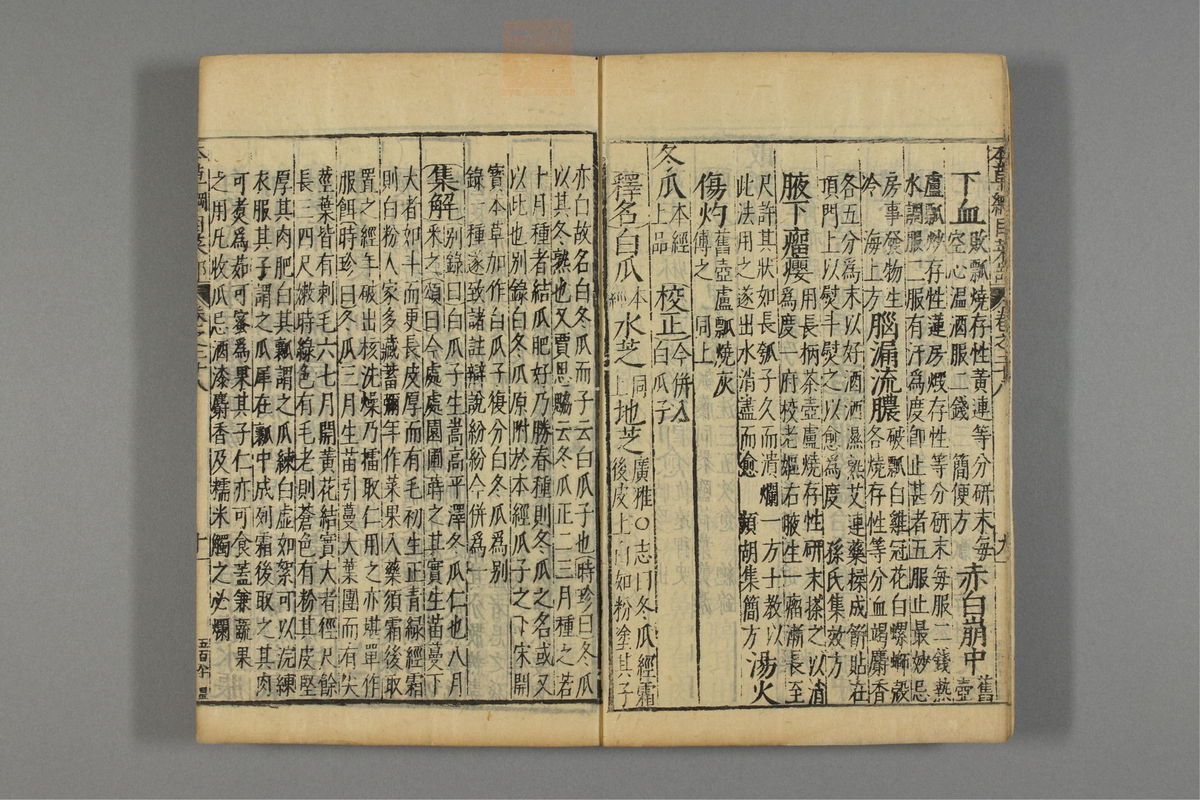 本草綱目菜部 卷之二十八 九
下血敗瓢燒存性黃連等分研末每空心溫酒服二錢 簡便方 赤白崩中舊壺
盧瓢炒存性蓮房煅存性等分研末每服二錢熱
水調服三服有汗為度卽止甚者五服止最妙忌
房事發物生冷 海上方 腦漏流膿破瓢白雞冠花白螺螄殼各燒存性等分血竭麝香
各五分為末以好酒洒濕熟艾連藥揉成餅貼在
頂門上以熨斗熨之以愈為度 孫氏集效方
腋下瘤癭用長柄茶壺盧燒存性研末搽之以消為度一府校老嫗右腋生一瘤漸長至
尺許其狀如長瓠子久而潰爛一方士教以
此法用之遂出水消盡而愈 瀕湖集簡方 湯火
傷灼舊壺盧瓢燒灰傅之 同上
冬瓜本經上品 校正今併入白瓜子
釋名白瓜本經水芝同上地芝廣雅○志曰冬瓜經霜後皮上白如粉塗其子
亦白故名白冬瓜而子云白瓜子也時珍曰冬瓜
以其冬熟也又賈思勰云冬瓜正二三月種之若
十月種者結瓜肥好乃勝春種則冬瓜之名或又
以此也別錄白冬瓜原附於本經瓜子之下宋開
寶本草加作白瓜子復分白冬瓜為別
錄一種遂致諸註辯說紛紛今併為一
集解別錄曰白瓜子生嵩高平澤冬瓜仁也八月采之頌曰今處處園圃蒔之其實生苗蔓下
大者如斗而更長皮厚而有毛初生正青綠經霜
則白粉人家多藏蓄彌年作菜果入藥須霜後取
置之經年破出核洗燥乃擂取仁用之亦堪單作
服餌時珍曰冬瓜三月生苗引蔓大葉團而有尖
莖葉皆有刺毛六七月開黃花結實大者徑尺餘
長三四尺嫩時綠色有毛老則蒼色有粉其皮堅
厚其肉肥白其瓤謂之瓜練白虛如絮可以浣練
衣服其子謂之瓜犀在瓤中成列霜後取之其肉
可煮為茹可蜜為果其子仁亦可食蓋兼蔬果
之用凡收瓜忌酒漆麝香及糯米觸之必爛
本草綱目菜部 卷之二十八 十